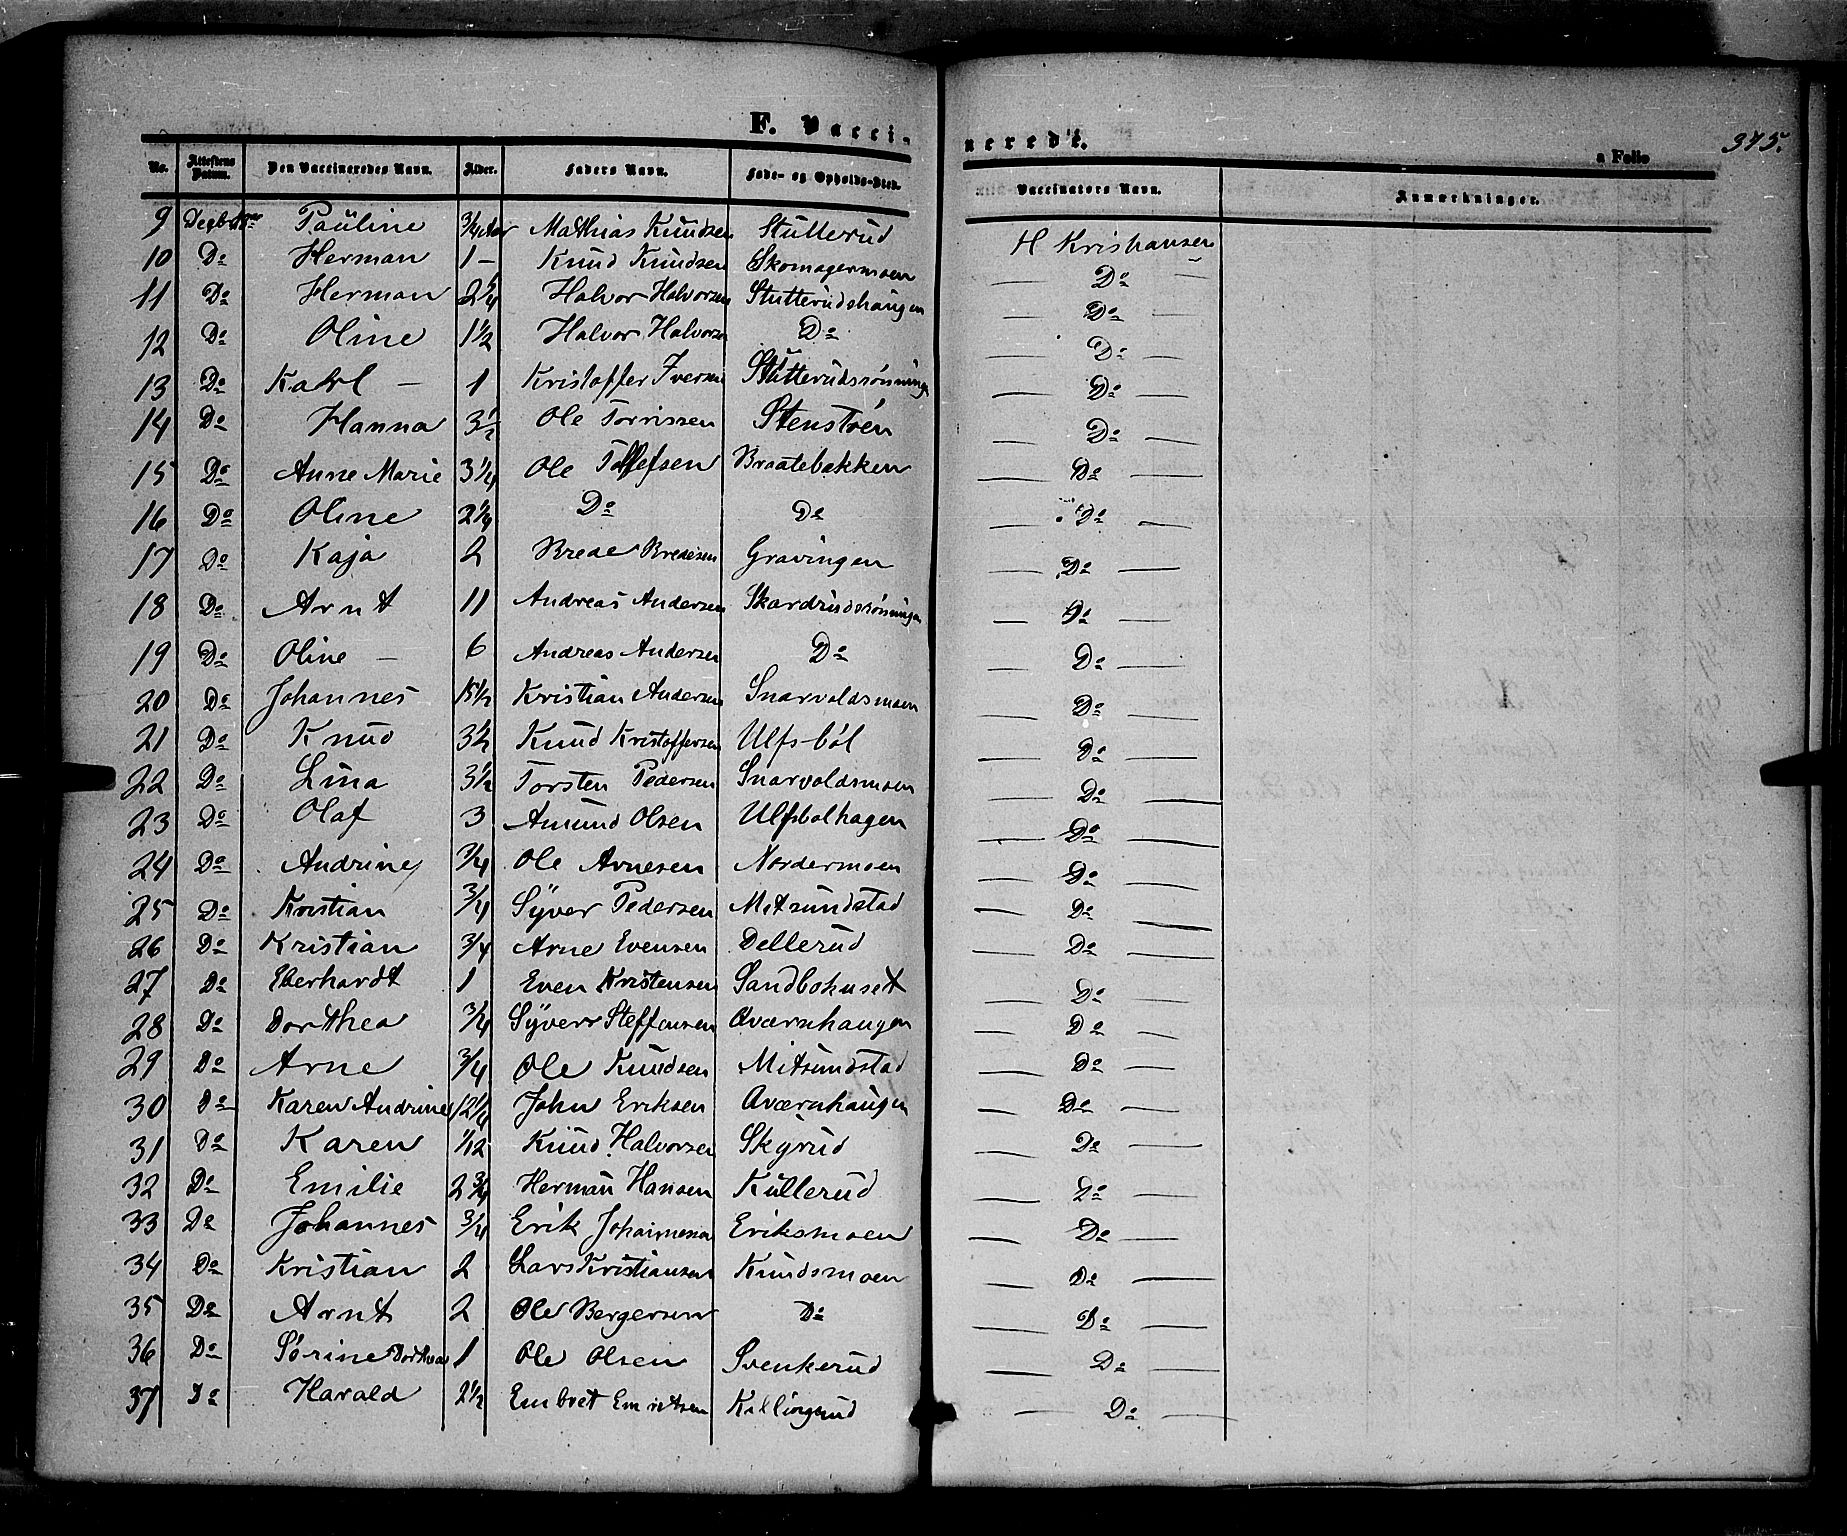 F. Vaccineredt.
375.
a Folio
No. Attestens Datum. Den Vaccineredes Navn. Alder. Faders Navn. Føde- og Opholds-Sted. Vaccinators Navn. Anmærkninger.
9 Pauline 3/4 Aar Mathias Knudsen Stutterud H Kristiansen
10 Do Herman 1 – Knud Knudsen Skomagermoen — Do —
11 Do Herman 2 1/4 Halvor Halvorsen Stutterudshaugen — Do —
12 Do Oline 1 1/2 Halvor Halvorsen Do — Do —
13 Do Karl – 1 Kristoffer Iversen Stutterudsrønningen — Do —
14 Do Hanna 3 1/2 Ole Torrissen Stenstøen — Do —
15 Do Anne Marie 3 1/4 Ole Tollefsen Braatebækken — Do —
16 Do Oline 2 1/4 Do Do — Do —
17 Do Kaja 2 Brede Bredesen Gravingen — Do —
18 Do Arnt 11 Andreas Andersen Skardrudsrønningen — Do —
19 Do Oline – 6 Andreas Andersen Do — Do —
20 Do Johannes 1 1/2 Kristian Andersen Snarvoldsmoen — Do —
21 Do Knud 3 1/2 Knud Kristoffersen Ulfsbøl — Do —
22 Do Lina 3 1/2 Torsten Pedersen Snarvoldsmoen — Do —
23 Do Olaf 3 Amund Olsen Ulfsbølhagen — Do —
24 Do Andrine 3/4 Ole Arnesen Nordermoen — Do —
25 Do Kristian 3/4 Syver Pedersen Mitsundstad — Do —
26 Do Kristian 3/4 Arne Evensen Dellerud — Do —
27 Do Eberhardt 1 Even Kristensen Sandbohuset — Do —
28 Do Dorthea 3/4 Syverr Steffensen Aværnhaugen — Do —
29 Do Arne 3/4 Ole Knudsen Mitsundstad — Do —
30 Do Karen Andrine John Eriksen Aværnhaugen — Do —
31 Do Karen 1/12 Knud Halvorsen Skyrud — Do —
32 Do Emilie 2 3/4 Herman Hansen Kullerud — Do —
33 Do Johannes 3/4 Erik Johannesen Eriksmoen — Do —
34 Do Kristian 2 Lars Kristiansen Knudsmoen — Do —
35 Do Arnt 2 Ole Bergersen Do — Do —
36 Do Sørine Dorthea 1 Ole Olsen Svenkerud — Do —
37 Do Harald 2 1/2 Embret Killingrud — Do —